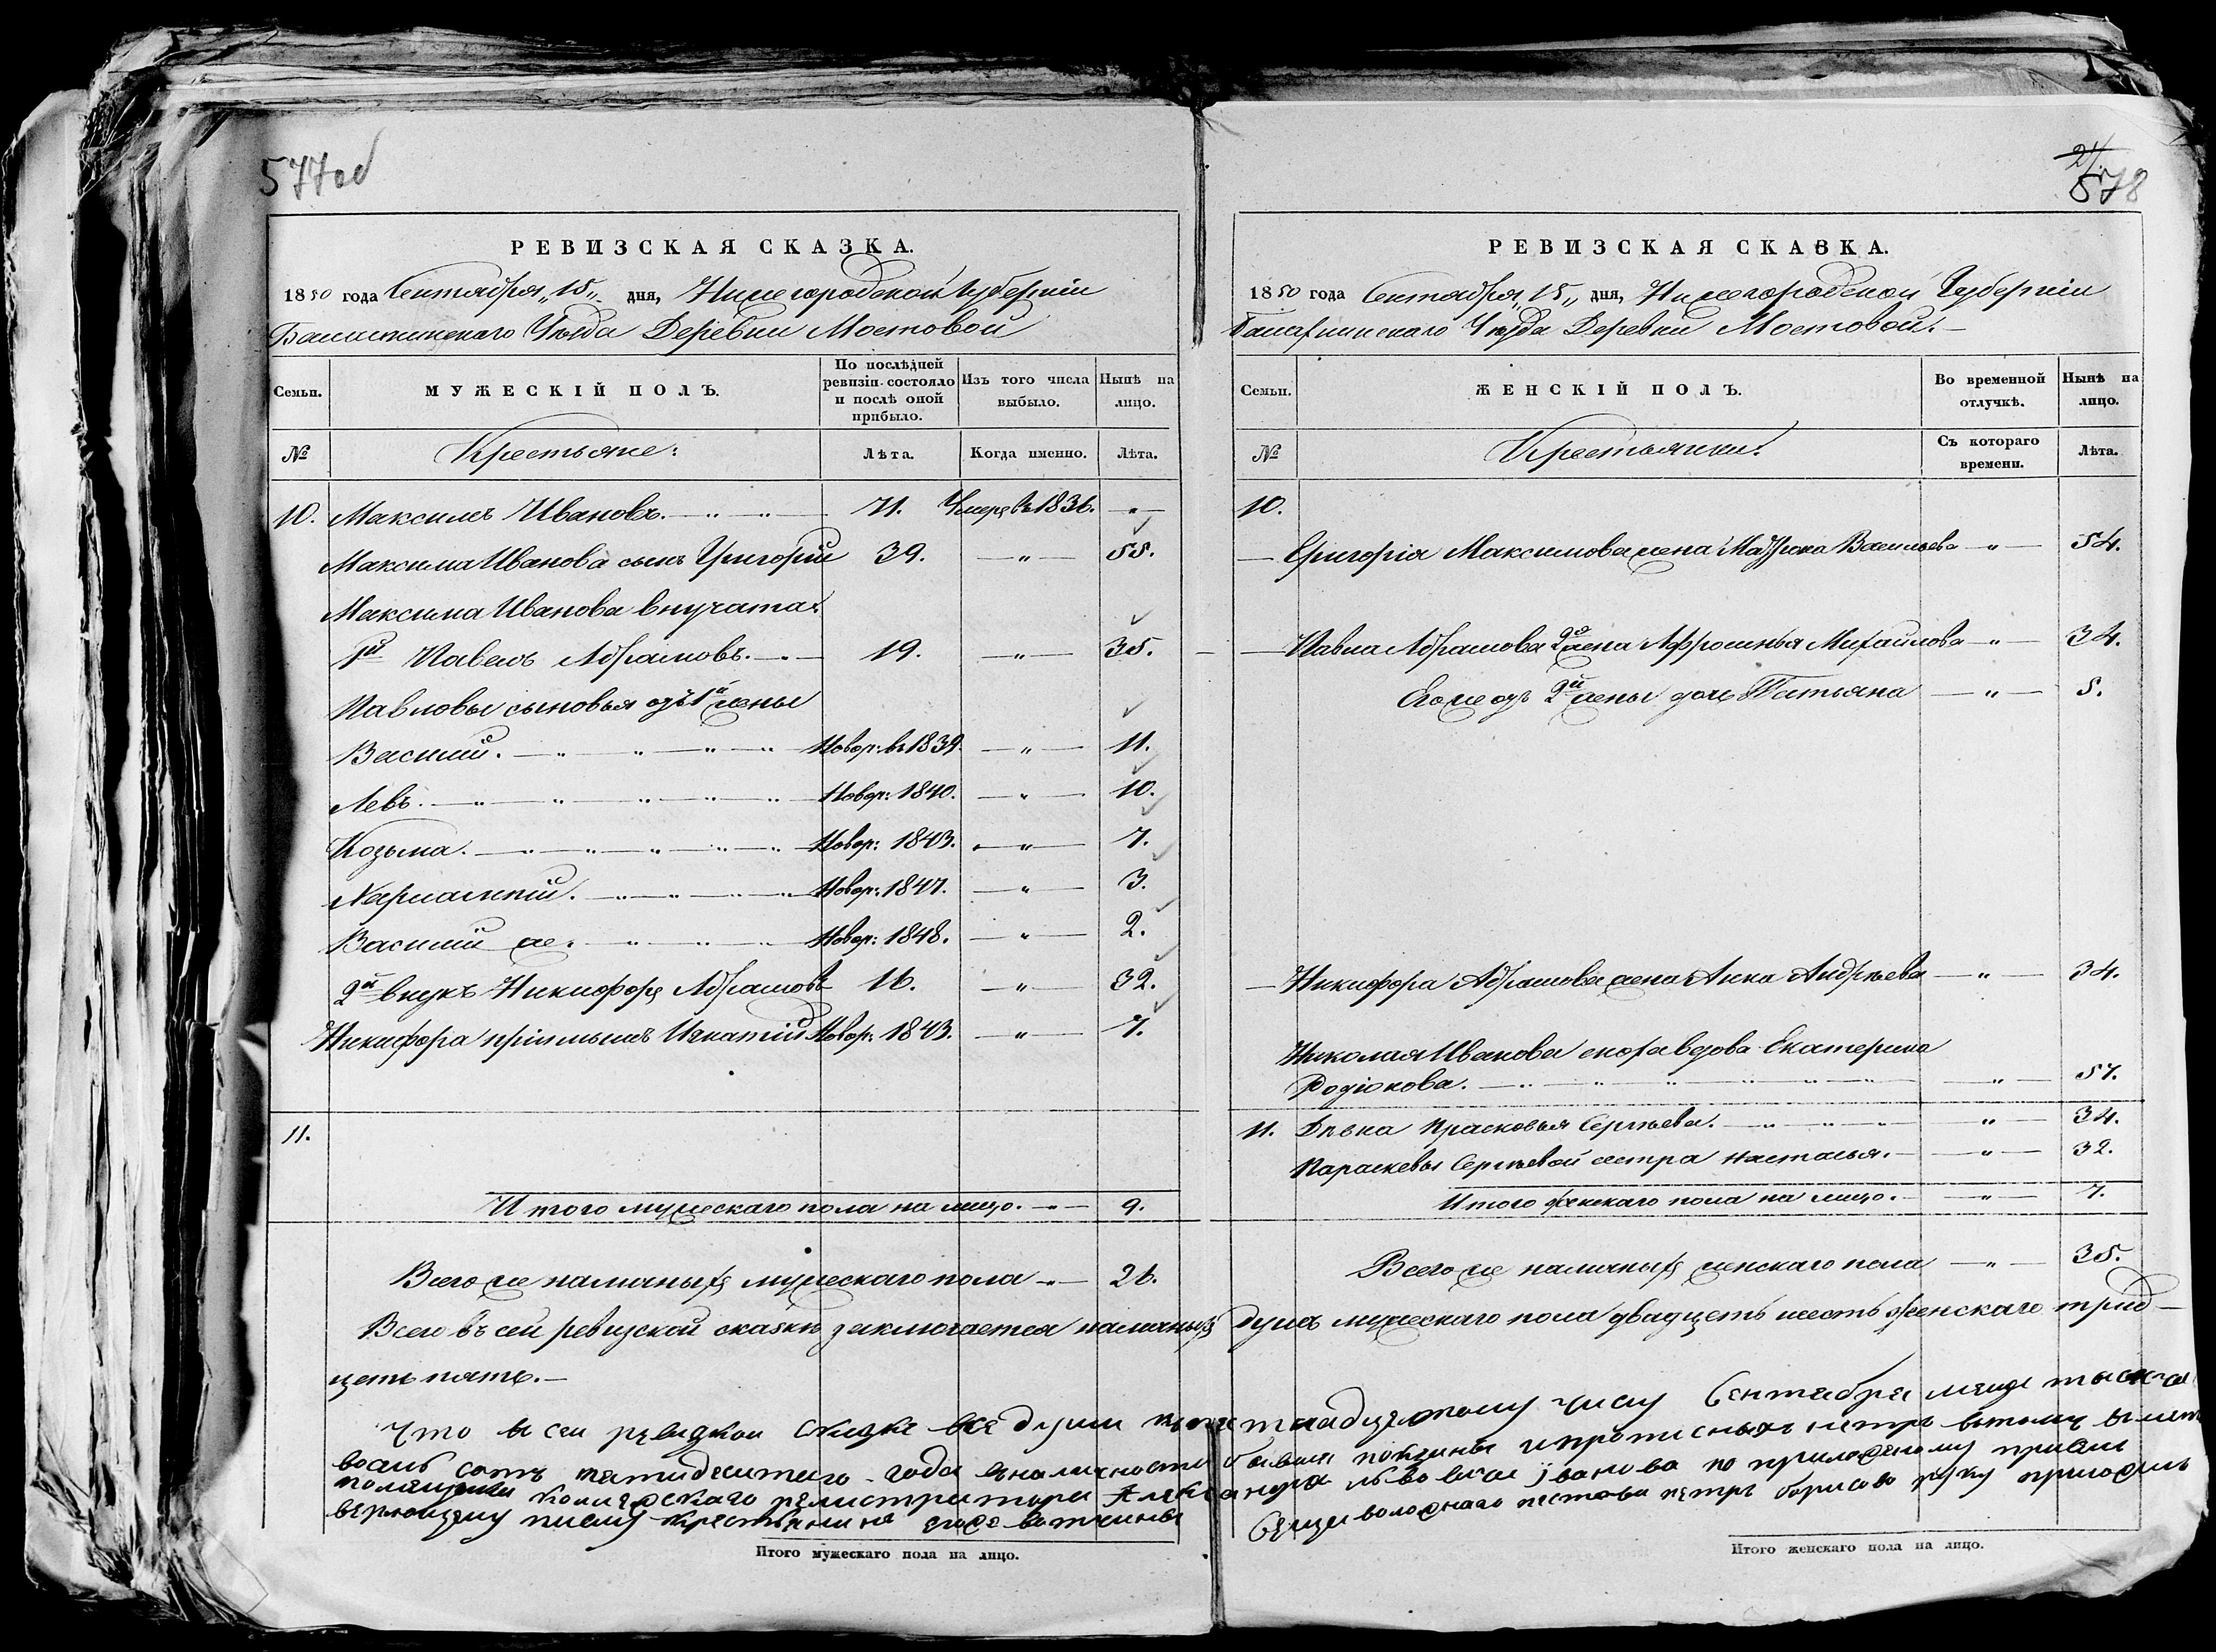 577об
РЕВИЗСКАЯ СКАЗКА.
1850 года Сентября „15„ дня, Нижегородской Губерніи
Уѣзда Деревни Мостовой
Семьи.
МУЖЕСКІЙ ПОЛЪ.
По послѣдней ревизіи состояло и послѣ оной прибыло.
Изъ того числа выбыло.
Нынѣ на лицо.
№
Крестьяне:
Лѣта.
Когда именно.
Лѣта.
10. Максимъ Ивановъ. 71. Умеръ въ 1836. "
Максима Иванова сынъ Григорій 39. " 55.
Максима Иванова внучата:
1й Павелъ Абрамовъ. 19. " 35.
Павловы сыновья отъ 1й жены
Василий. Новор: въ 1839 " 11.
Левъ. Новор: 1840. " 10.
Козьма. Новор: 1843. " 7.
Харлампій. Новор: 1847. " 3.
Василий же. Новор: 1848. " 2.
2й внукъ Никифоръ Абрамовъ 16. " 32.
Никифора пріемышъ Игнатій Новор: 1843. " 7.
11.
Итого мужескаго пола на лицо. 9.
Всего же наличныхъ мужескаго пола 26.
Всего въ сей ревизской сказкѣ заключается наличныхъ
цеть пять.
Что в сеи ревизкои сказке все души
восмь сотъ пятидесятаго года
Колежскаго регистратора Александра
верющему писму крестьянинъ вотчины
Итого мужескаго пола на лицо.
21
578
РЕВИЗСКАЯ СКАЗКА.
1850 года Сентября „15„ дня, Нижегородской Губерніи
Уѣзда Деревни Мостовой.
Семьи.
ЖЕНСКІЙ ПОЛЪ.
Во временной отлучкѣ.
Нынѣ на лицо.
№
Крестьянки:
Съ котораго времени.
Лѣта.
10.
Григорія Максимова жена Матрена Васильева " 54.
Павла Абрамова 2я жена Афросинья Михайлова " 34.
Его же отъ 2й жены дочь Татьяна " 5.
Никифора Абрамова жена Анна Андрѣева " 34.
Николая Иванова вдова Екатерина
Родіонова. " 57.
11. Дѣвка Прасковья Сергѣева. " 34.
Параскевы Сергѣевой сестра Настасья. " 32.
Итого женскаго пола на лицо. " 7.
Всего же наличныхъ женскаго пола " 35.
душъ мужескаго пола двадцеть шесть женскаго трид-
числу Сентября
Иванова по
петръ борисовъ руку приложилъ
Итого женскаго пола на лицо.